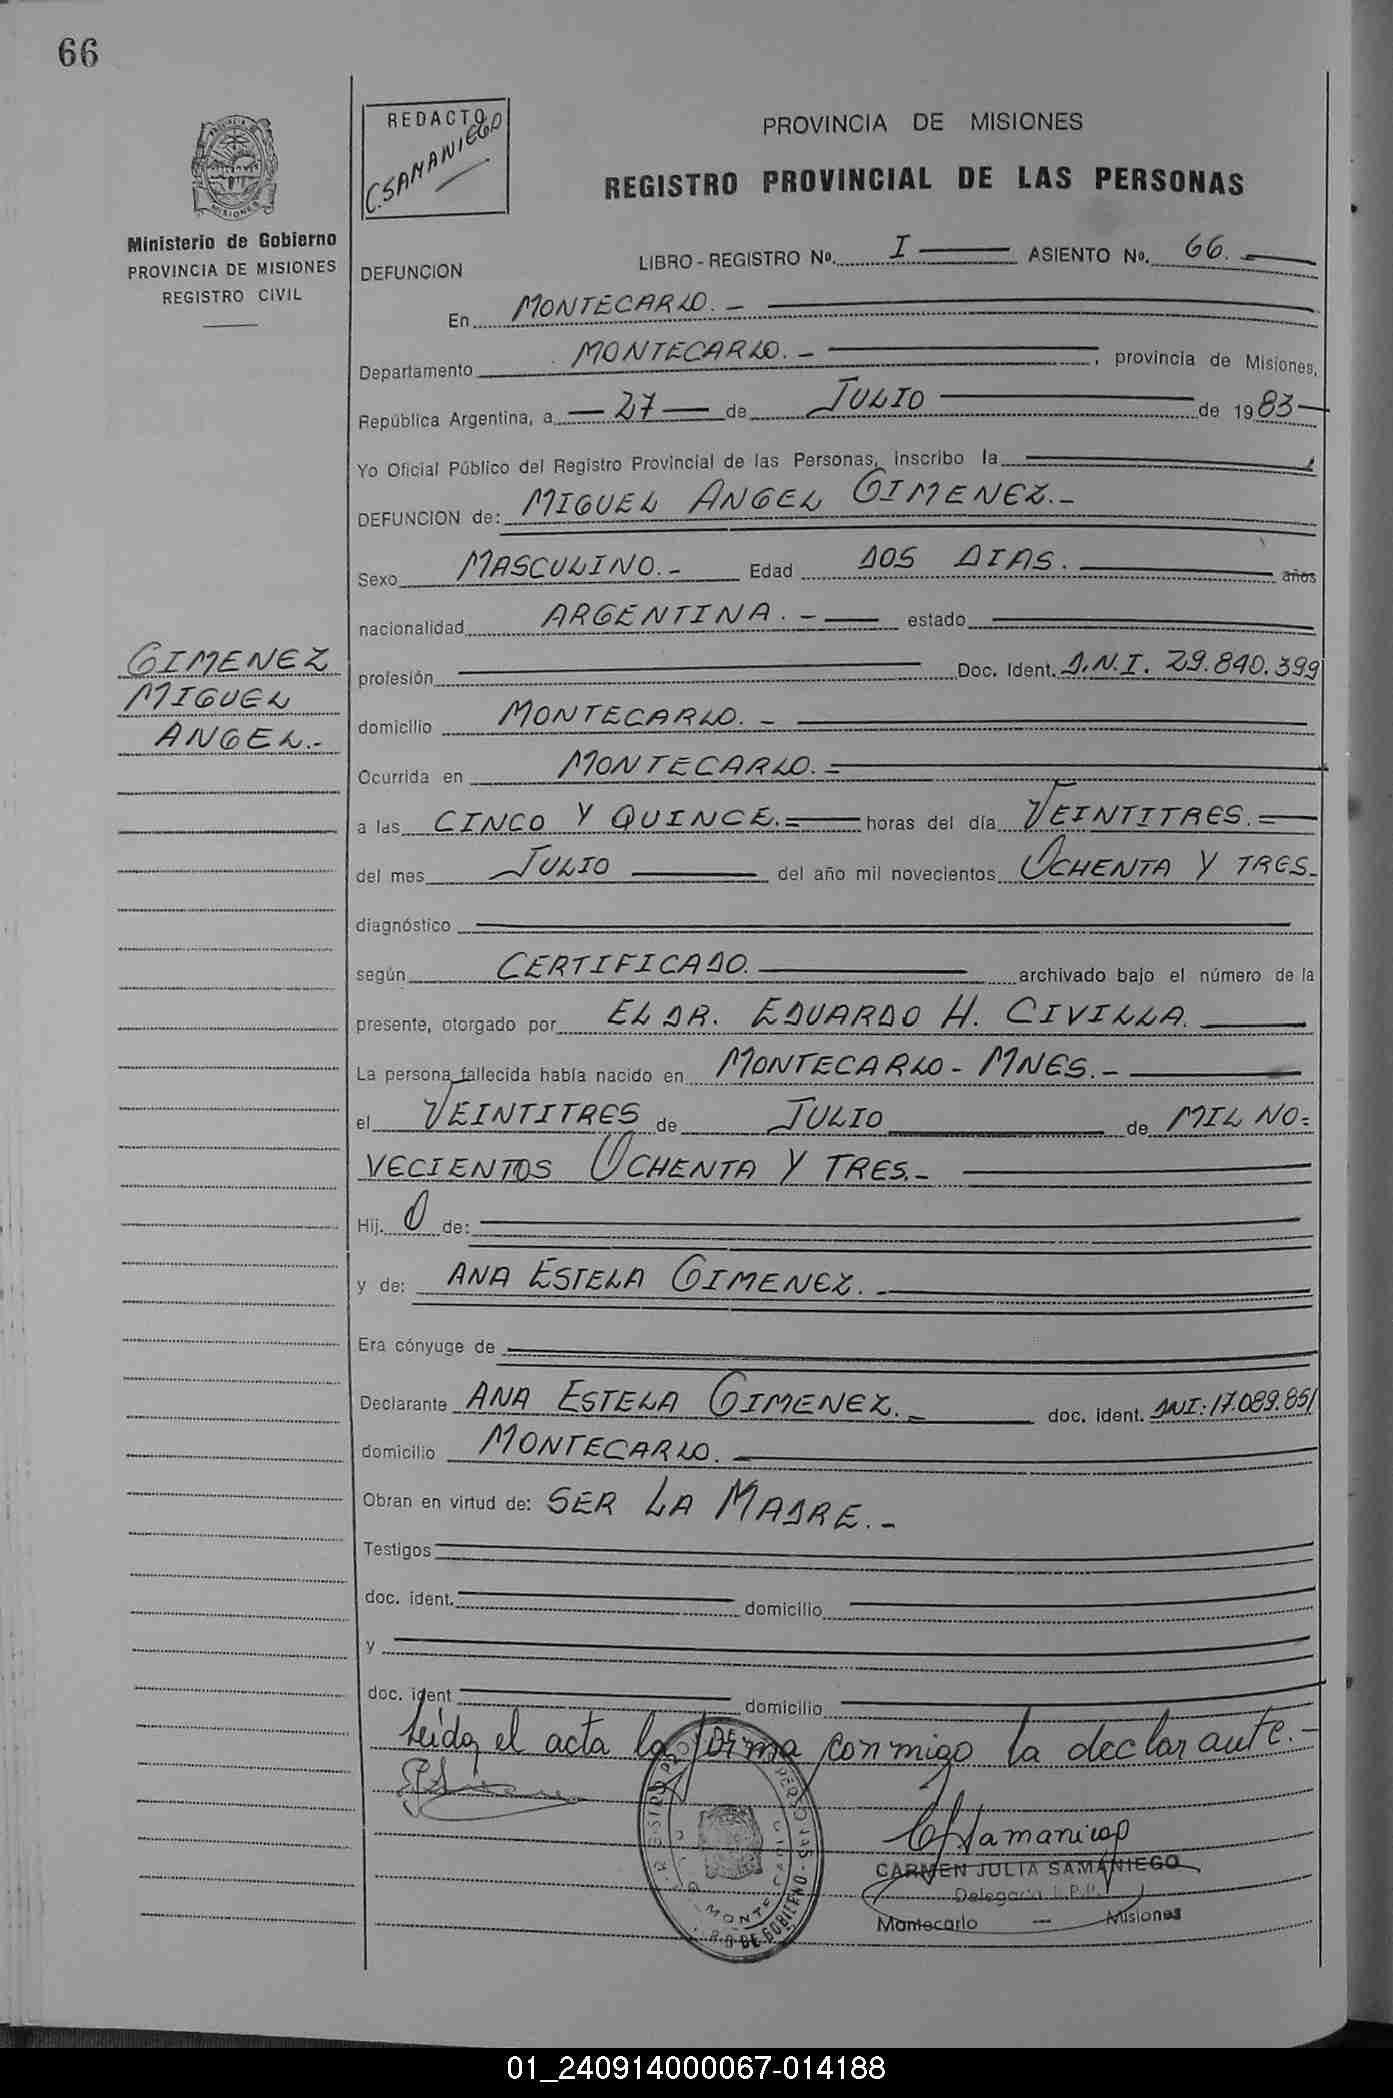 66
REDACTO
C. SAMANIEGO
PROVINCIA DE MISIONES
REGISTRO PROVINCIAL DE LAS PERSONAS
Ministerio de Gobierno
PROVINCIA DE MISIONES
REGISTRO CIVIL
DEFUNCION
LIBRO - REGISTRO Nº. I ASIENTO Nº. 66.
En MONTECARLO. -
Departamento MONTECARLO. - , provincia de Misiones,
República Argentina, a - 27 - de JULIO de 1983 -
Yo Oficial Público del Registro Provincial de las Personas, inscribo la
DEFUNCION de: MIGUEL ANGEL GIMENEZ. -
Sexo MASCULINO. - Edad DOS DIAS. años
nacionalidad ARGENTINA. - estado
GIMENEZ
MIGUEL
ANGEL. -
profesión Doc. Ident. D.N.I. 29.840.399
domicilio MONTECARLO. -
Ocurrida en MONTECARLO. =
a las CINCO Y QUINCE. = horas del día VEINTITRES. =
del mes JULIO del año mil novecientos OCHENTA Y TRES -
diagnóstico
según CERTIFICADO. archivado bajo el número de la
presente, otorgado por EL DR. EDUARDO H. CIVILLA.
La persona fallecida había nacido en MONTECARLO - MNES. -
el VEINTITRES de JULIO de MIL NO=
VECIENTOS OCHENTA Y TRES. -
Hij. O de:
y de: ANA ESTELA GIMENEZ. -
Era cónyuge de
Declarante ANA ESTELA GIMENEZ. - doc. ident. DNI: 17.089.851
domicilio MONTECARLO.
Obran en virtud de: SER LA MADRE. -
Testigos
doc. ident. domicilio
y
doc. ident domicilio
Leída el acta la firma conmigo la declarante. -
CSamaniego
CARMEN JULIA SAMANIEGO
Delegada R.P.P.
Montecarlo — Misiones
01_240914000067-014188